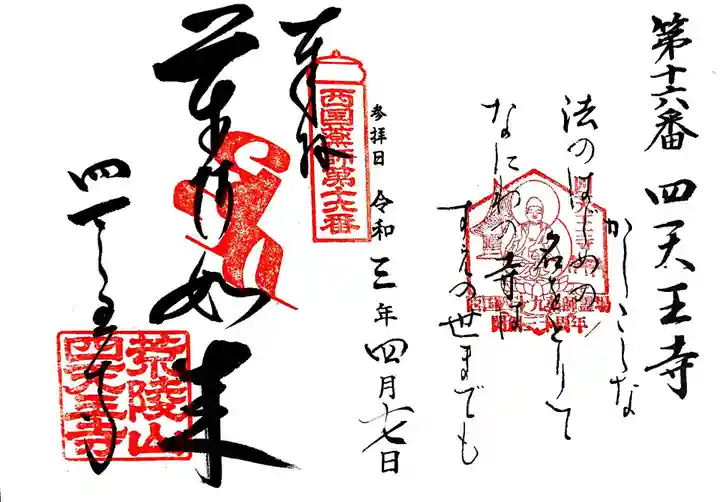 第十六番 四天王寺
かしこしな
法のはじめの
名をとりて
なにわの寺は
すえの世までも
参拝日 令和三年四月七日
西国薬師第十六番
奉拝
薬師如来
四天王寺
荒陵山
四天王寺